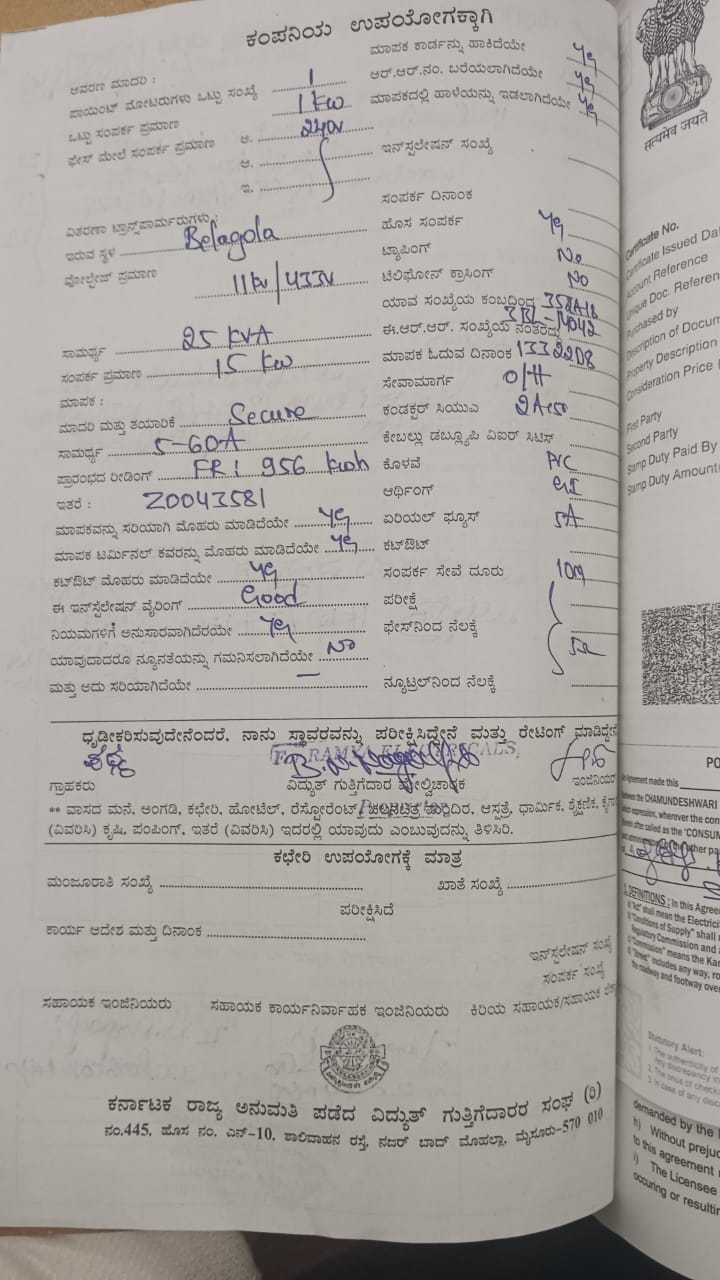 ಕಂಪನಿಯ ಉಪಯೋಗಕ್ಕಾಗಿ
ಆವರಣ ಮಾದರಿ :
ಪಾಯಿಂಟ್ ಮೋಟರುಗಳು ಒಟ್ಟು ಸಂಖ್ಯೆ 1
ಒಟ್ಟು ಸಂಪರ್ಕ ಪ್ರಮಾಣ 1 kw
ಫೇಸ್ ಮೇಲೆ ಸಂಪರ್ಕ ಪ್ರಮಾಣ ಅ. 240v
ಆ.
ಇ.
ವಿತರಣಾ ಟ್ರಾನ್ಸ್‌ಪಾರ್ಮರುಗಳು :
ಇರುವ ಸ್ಥಳ Belagola
ವೋಲ್ಟೇಜ್ ಪ್ರಮಾಣ 11kv/433v
ಸಾಮರ್ಥ್ಯ 25 KVA
ಸಂಪರ್ಕ ಪ್ರಮಾಣ 15 kw
ಮಾಪಕ :
ಮಾದರಿ ಮತ್ತು ತಯಾರಿಕೆ Secure
ಸಾಮರ್ಥ್ಯ 5-60A
ಪ್ರಾರಂಭದ ರೀಡಿಂಗ್ FR: 956 kwh
ಇತರೆ : Z0043581
ಮಾಪಕವನ್ನು ಸರಿಯಾಗಿ ಮೊಹರು ಮಾಡಿದೆಯೇ Yes
ಮಾಪಕ ಟರ್ಮಿನಲ್ ಕವರನ್ನು ಮೊಹರು ಮಾಡಿದೆಯೇ Yes
ಕಟ್‌ಔಟ್ ಮೊಹರು ಮಾಡಿದೆಯೇ Yes
ಈ ಇನ್‌ಸ್ಟಲೇಷನ್ ವೈರಿಂಗ್ Good
ನಿಯಮಗಳಿಗೆ ಅನುಸಾರವಾಗಿದೆರೆಯೇ Yes
ಯಾವುದಾದರೂ ನ್ಯೂನತೆಯನ್ನು ಗಮನಿಸಲಾಗಿದೆಯೇ No
ಮತ್ತು ಅದು ಸರಿಯಾಗಿದೆಯೇ —
ಮಾಪಕ ಕಾರ್ಡನ್ನು ಹಾಕಿದೆಯೇ Yes
ಆರ್.ಆರ್.ನಂ. ಬರೆಯಲಾಗಿದೆಯೇ Yes
ಮಾಪಕದಲ್ಲಿ ಹಾಳೆಯನ್ನು ಇಡಲಾಗಿದೆಯೇ Yes
ಇನ್‌ಸ್ಟಲೇಷನ್ ಸಂಖ್ಯೆ
ಸಂಪರ್ಕ ದಿನಾಂಕ
ಹೊಸ ಸಂಪರ್ಕ Yes
ಟ್ಯಾಪಿಂಗ್ No
ಟೆಲಿಫೋನ್ ಕ್ರಾಸಿಂಗ್ No
ಯಾವ ಸಂಖ್ಯೆಯ ಕಂಬದಿಂದ
ಈ.ಆರ್.ಆರ್. ಸಂಖ್ಯೆಯ ನಂತರದ್ದು
ಮಾಪಕ ಓದುವ ದಿನಾಂಕ
ಸೇವಾಮಾರ್ಗ O/H
ಕಂಡಕ್ಟರ್ ಸಿಯುಎ
ಕೇಬಲ್ಲು ಡಬ್ಲ್ಯೂಪಿ ಐಆರ್ ಸಿಟಿಸ್
ಕೊಳವೆ PVC
ಆರ್ಥಿಂಗ್ GI
ಏರಿಯಲ್ ಫ್ಯೂಸ್ 5A
ಕಟ್‌ಔಟ್
ಸಂಪರ್ಕ ಸೇವೆ ದೂರು 10m
ಪರೀಕ್ಷೆ
ಫೇಸ್‌ನಿಂದ ನೆಲಕ್ಕೆ
ನ್ಯೂಟ್ರಲ್‌ನಿಂದ ನೆಲಕ್ಕೆ
ಧೃಢೀಕರಿಸುವುದೇನೆಂದರೆ, ನಾನು ಸ್ಥಾವರವನ್ನು ಪರೀಕ್ಷಿಸಿದ್ದೇನೆ ಮತ್ತು ರೇಟಿಂಗ್ ಮಾಡಿದ್ದೇನೆ
RAMYA ELECTRICALS,
ಗ್ರಾಹಕರು ವಿದ್ಯುತ್ ಗುತ್ತಿಗೆದಾರ ಮೇಲ್ವಿಚಾರಕ ಇಂಜಿನಿಯರ್
Proprietor
** ವಾಸದ ಮನೆ, ಅಂಗಡಿ, ಕಛೇರಿ, ಹೋಟೆಲ್, ರೆಸ್ಟೋರೆಂಟ್, ಚಲನಚಿತ್ರ ಮಂದಿರ, ಆಸ್ಪತ್ರೆ, ಧಾರ್ಮಿಕ, ಶೈಕ್ಷಣಿಕ,
(ವಿವರಿಸಿ) ಕೃಷಿ, ಪಂಪಿಂಗ್, ಇತರೆ (ವಿವರಿಸಿ) ಇದರಲ್ಲಿ ಯಾವುದು ಎಂಬುವುದನ್ನು ತಿಳಿಸಿರಿ.
ಕಛೇರಿ ಉಪಯೋಗಕ್ಕೆ ಮಾತ್ರ
ಮಂಜೂರಾತಿ ಸಂಖ್ಯೆ ಖಾತೆ ಸಂಖ್ಯೆ
ಪರೀಕ್ಷಿಸಿದೆ
ಕಾರ್ಯ ಆದೇಶ ಮತ್ತು ದಿನಾಂಕ
ಇನ್‌ಸ್ಟಲೇಷನ್ ಸಂಖ್ಯೆ
ಸಂಪರ್ಕ ಸಂಖ್ಯೆ
ಸಹಾಯಕ ಇಂಜಿನಿಯರು ಸಹಾಯಕ ಕಾರ್ಯನಿರ್ವಾಹಕ ಇಂಜಿನಿಯರು ಕಿರಿಯ ಸಹಾಯಕ/ಸಹಾಯಕ
ಕರ್ನಾಟಕ ರಾಜ್ಯ ಅನುಮತಿ ಪಡೆದ ವಿದ್ಯುತ್ ಗುತ್ತಿಗೆದಾರರ ಸಂಘ (ರಿ)
ನಂ.445, ಹೊಸ ನಂ. ಎನ್-10, ಶಾಲಿವಾಹನ ರಸ್ತೆ, ನಜರ್ ಬಾದ್ ಮೊಹಲ್ಲಾ, ಮೈಸೂರು-570 010
सत्यमेव जयते
Certificate No.
Certificate Issued Da
Account Reference
Unique Doc. Referen
Purchased by
Description of Docum
Property Description
Consideration Price (
First Party
Second Party
Stamp Duty Paid By
Stamp Duty Amount(
PO
Agreement made this
between the CHAMUNDESHWARI
which expression, wherever the con
after called as the 'CONSUM
other pa
1. DEFINITIONS : In this Agree
"Act" shall mean the Electrici
"Conditions of Supply" shall
Regulatory Commission and
"Commission" means the Kar
"Street" includes any way, ro
the roadway and footway over
Statutory Alert:
1. The authenticity of
Any discrepancy in
2. The onus of check
3. In case of any disc
demanded by the
h) Without preju
to this agreement
i) The Licensee
occuring or resultin